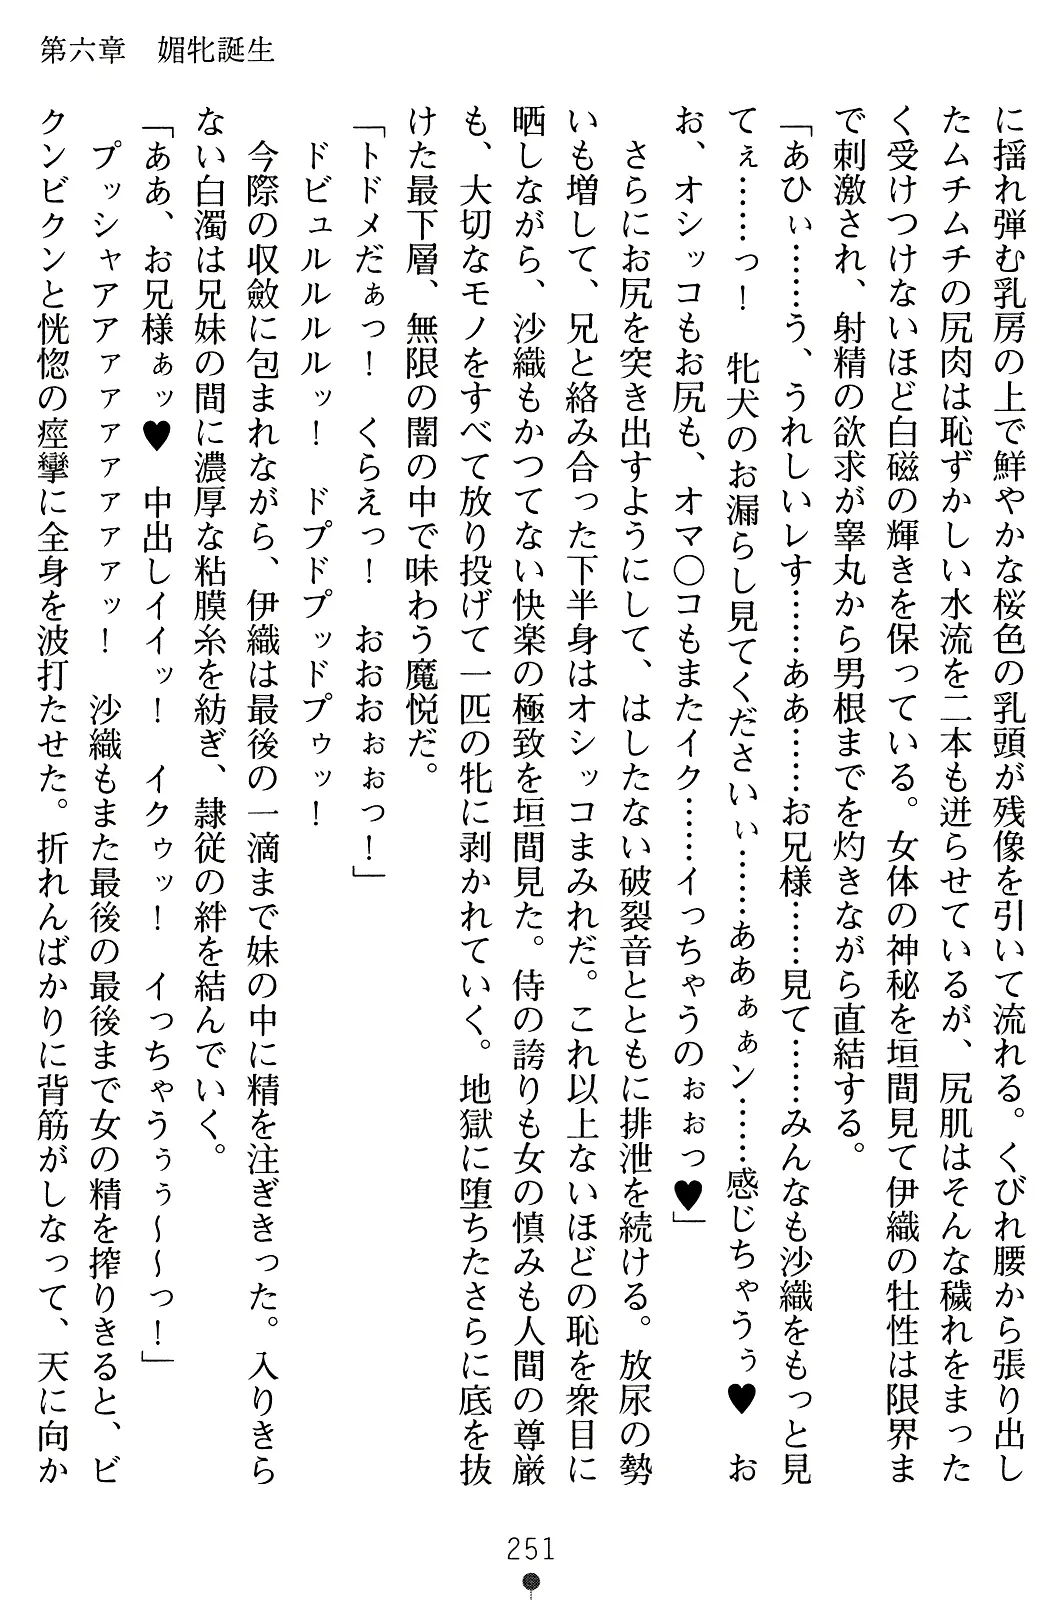 第六章　媚牝誕生
に揺れ弾む乳房の上で鮮やかな桜色の乳頭が残像を引いて流れる。くびれ腰から張り出し
たムチムチの尻肉は恥ずかしい水流を二本も迸らせているが、尻肌はそんな穢れをまった
く受けつけないほど白磁の輝きを保っている。女体の神秘を垣間見て伊織の牡性は限界ま
で刺激され、射精の欲求が睾丸から男根までを灼きながら直結する。
「あひぃ……う、うれしいレす……ああ……お兄様……見て……みんなも沙織をもっと見
てぇ……っ！　牝犬のお漏らし見てくださいぃ……ああぁぁン……感じちゃうぅ♥　お
お、オシッコもお尻も、オマ〇コもまたイク……イっちゃうのぉぉっ♥」
　さらにお尻を突き出すようにして、はしたない破裂音とともに排泄を続ける。放尿の勢
いも増して、兄と絡み合った下半身はオシッコまみれだ。これ以上ないほどの恥を衆目に
晒しながら、沙織もかつてない快楽の極致を垣間見た。侍の誇りも女の慎みも人間の尊厳
も、大切なモノをすべて放り投げて一匹の牝に剥かれていく。地獄に堕ちたさらに底を抜
けた最下層、無限の闇の中で味わう魔悦だ。
「トドメだぁっ！　くらえっ！　おおおぉぉっ！」
　ドビュルルルルッ！　ドプドプッドプゥッ！
　今際の収斂に包まれながら、伊織は最後の一滴まで妹の中に精を注ぎきった。入りきら
ない白濁は兄妹の間に濃厚な粘膜糸を紡ぎ、隷従の絆を結んでいく。
「ああ、お兄様ぁッ♥　中出しイイッ！　イクゥッ！　イっちゃうぅぅ～～っ！」
　プッシャアアァァァァァァッ！　沙織もまた最後の最後まで女の精を搾りきると、ビ
クンビクンと恍惚の痙攣に全身を波打たせた。折れんばかりに背筋がしなって、天に向か
251